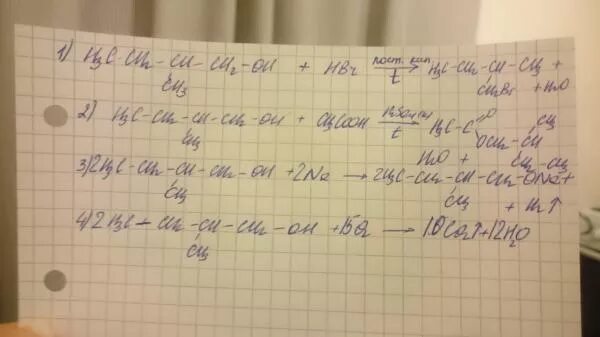 1) H3C-CH2-CH-CH2-OH + HBr пост. кип. → t H3C-CH2-CH-CH3 +
CH3 CH2Br + H2O
2) H3C-CH2-CH-CH2-OH + CH3COOH → t H3C-C =O CH3
CH3 OCH2-CH
H2O + CH2-CH3
3) 2H3C-CH2-CH-CH2-OH + 2Na → 2H3C-CH2-CH-CH2-ONa+
CH3 CH3 + H2↑
4) 2H3C-CH2-CH-CH2-OH + 15O2 → 10CO2↑+12H2O
CH3